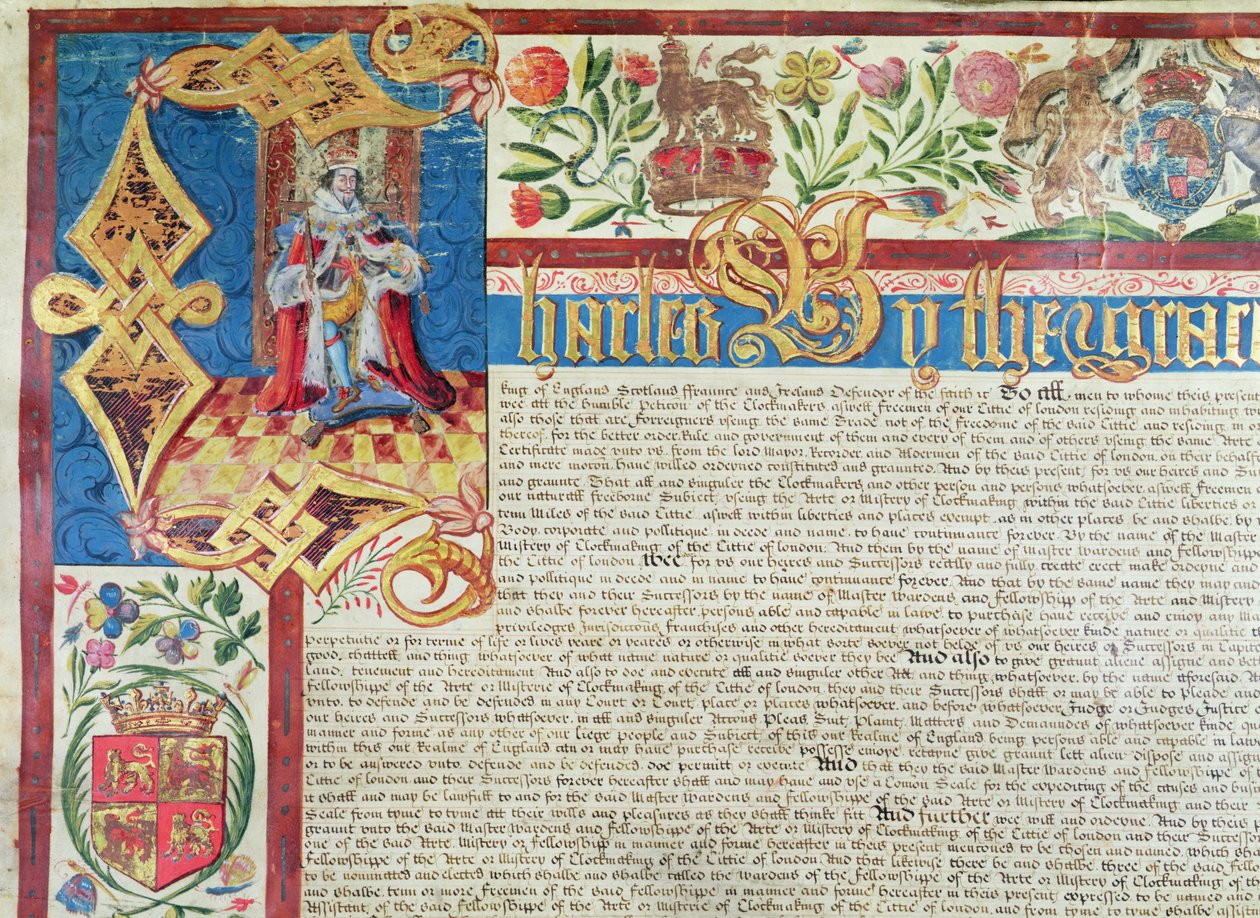 Charles By the grac
king of England Scotland ffraunce and Ireland Defendor of the faith &c To all men to whome theis present
wee all the humble Peticon of the Clockmakers aswell Freemen of our Cittie of london residing and inhabiting
also those that are Forreigners vseing the same Trade not of the Freedome of the said Cittie and residing in
thereof for the better order Rule and government of them and every of them and of others vseing the same Arte
Certificate made vnto vs from the lord Mayor Recorder and Aldermen of the said Cittie of london on their behalfe
and mere mocon have willed ordeyned constituted and graunted And by theis present for vs our heires and
and graunte That all and singuler the Clockmakers and other person and persons whatsoever aswell Freemen
our naturall freeborne Subiect vseing the Arte or Mistery of Clockmaking within the said Cittie liberties
tenn Miles of the said Cittie aswell within liberties and places exempt as in other places be and shalbe by
Body corporate and pollitique in deede and name to have continuance forever By the name of the Master
Mistery of Clockmaking of the Cittie of london And them by the name of Master Wardens and Fellowshipp
the Cittie of london Wee for vs our heires and Successors really and fully create erect make ordeyne and
and pollitique in deede and in name to have continuance forever And that by the same name they may
that they and their Successors by the name of Master Wardens and Fellowshipp of the Arte and Mistery
and shalbe forever hereafter persons able and capable in lawe to purchase have receive and enioy any
priviledges Jurisdiccons Franchises and other hereditament whatsoever of whatsoever kinde nature or qualitie
perpetuitie or for terme of life or lives yeare or yeares or otherwise in what sorte soever not helde of vs our heires or Successors in Capite
good chattell and thing whatsoever of what name nature or qualitie soever they bee And also to give graunt aliene assigne and
land tenement and hereditament And also to doe and execute all and singuler other Act and thing whatsoever by the name aforesaid
Fellowshippe of the Arte or Misterie of Clockmaking of the Cittie of london they and their Successors shall or may be able to pleade and
vnto to defende and be defended in any Court or Court place or places whatsoever and before whatsoever Judge or Judges Justice
our heires and Successors whatsoever in all and singuler Accons Pleas Suit Plaint Matters and Demaundes of whatsoever kinde
manner and forme as any other of our liege people and Subiect of this our Realme of England being persons able and capable in
within this our Realme of England can or may have purchase receive possesse enioye retayne give graunt lett alien dispose and assigne
or to be answered vnto defende or be defended doe permitt or execute And that they the said Master Wardens and Fellowshippe of
Cittie of london and their Successors forever hereafter shall and may have and vse a Comon Seale for the expediting of the causes and
it shall and may be lawfull to and for the said Master Wardens and Fellowshippe of the said Arte or Mistery of Clockmaking and their
Seale from tyme to tyme att their wills and pleasures as they shall thinke fitt And further wee will and ordeyne And by theis
graunt vnto the said Master Wardens and Fellowshippe of the Arte or Mistery of Clockmaking of the Cittie of london and their
one of the said Arte Mistery or Fellowshipp in manner and forme hereafter in theis present mencioned to be chosen and named which
Fellowshippe of the Arte or Mistery of Clockmaking of the Cittie of london And that likewise there be and shalbe three of the said
to be nominated and elected which shalbe and shalbe called the Wardens of the Fellowshippe of the Arte or Mistery of Clockmaking of the
and shalbe tenn or more Freemen of the said Fellowshippe in manner and forme hereafter in theis present expressed to be named
Assistant of the said Fellowshippe of the Arte or Misterie of Clockmaking of the Cittie of london and from tyme to tyme shalbe